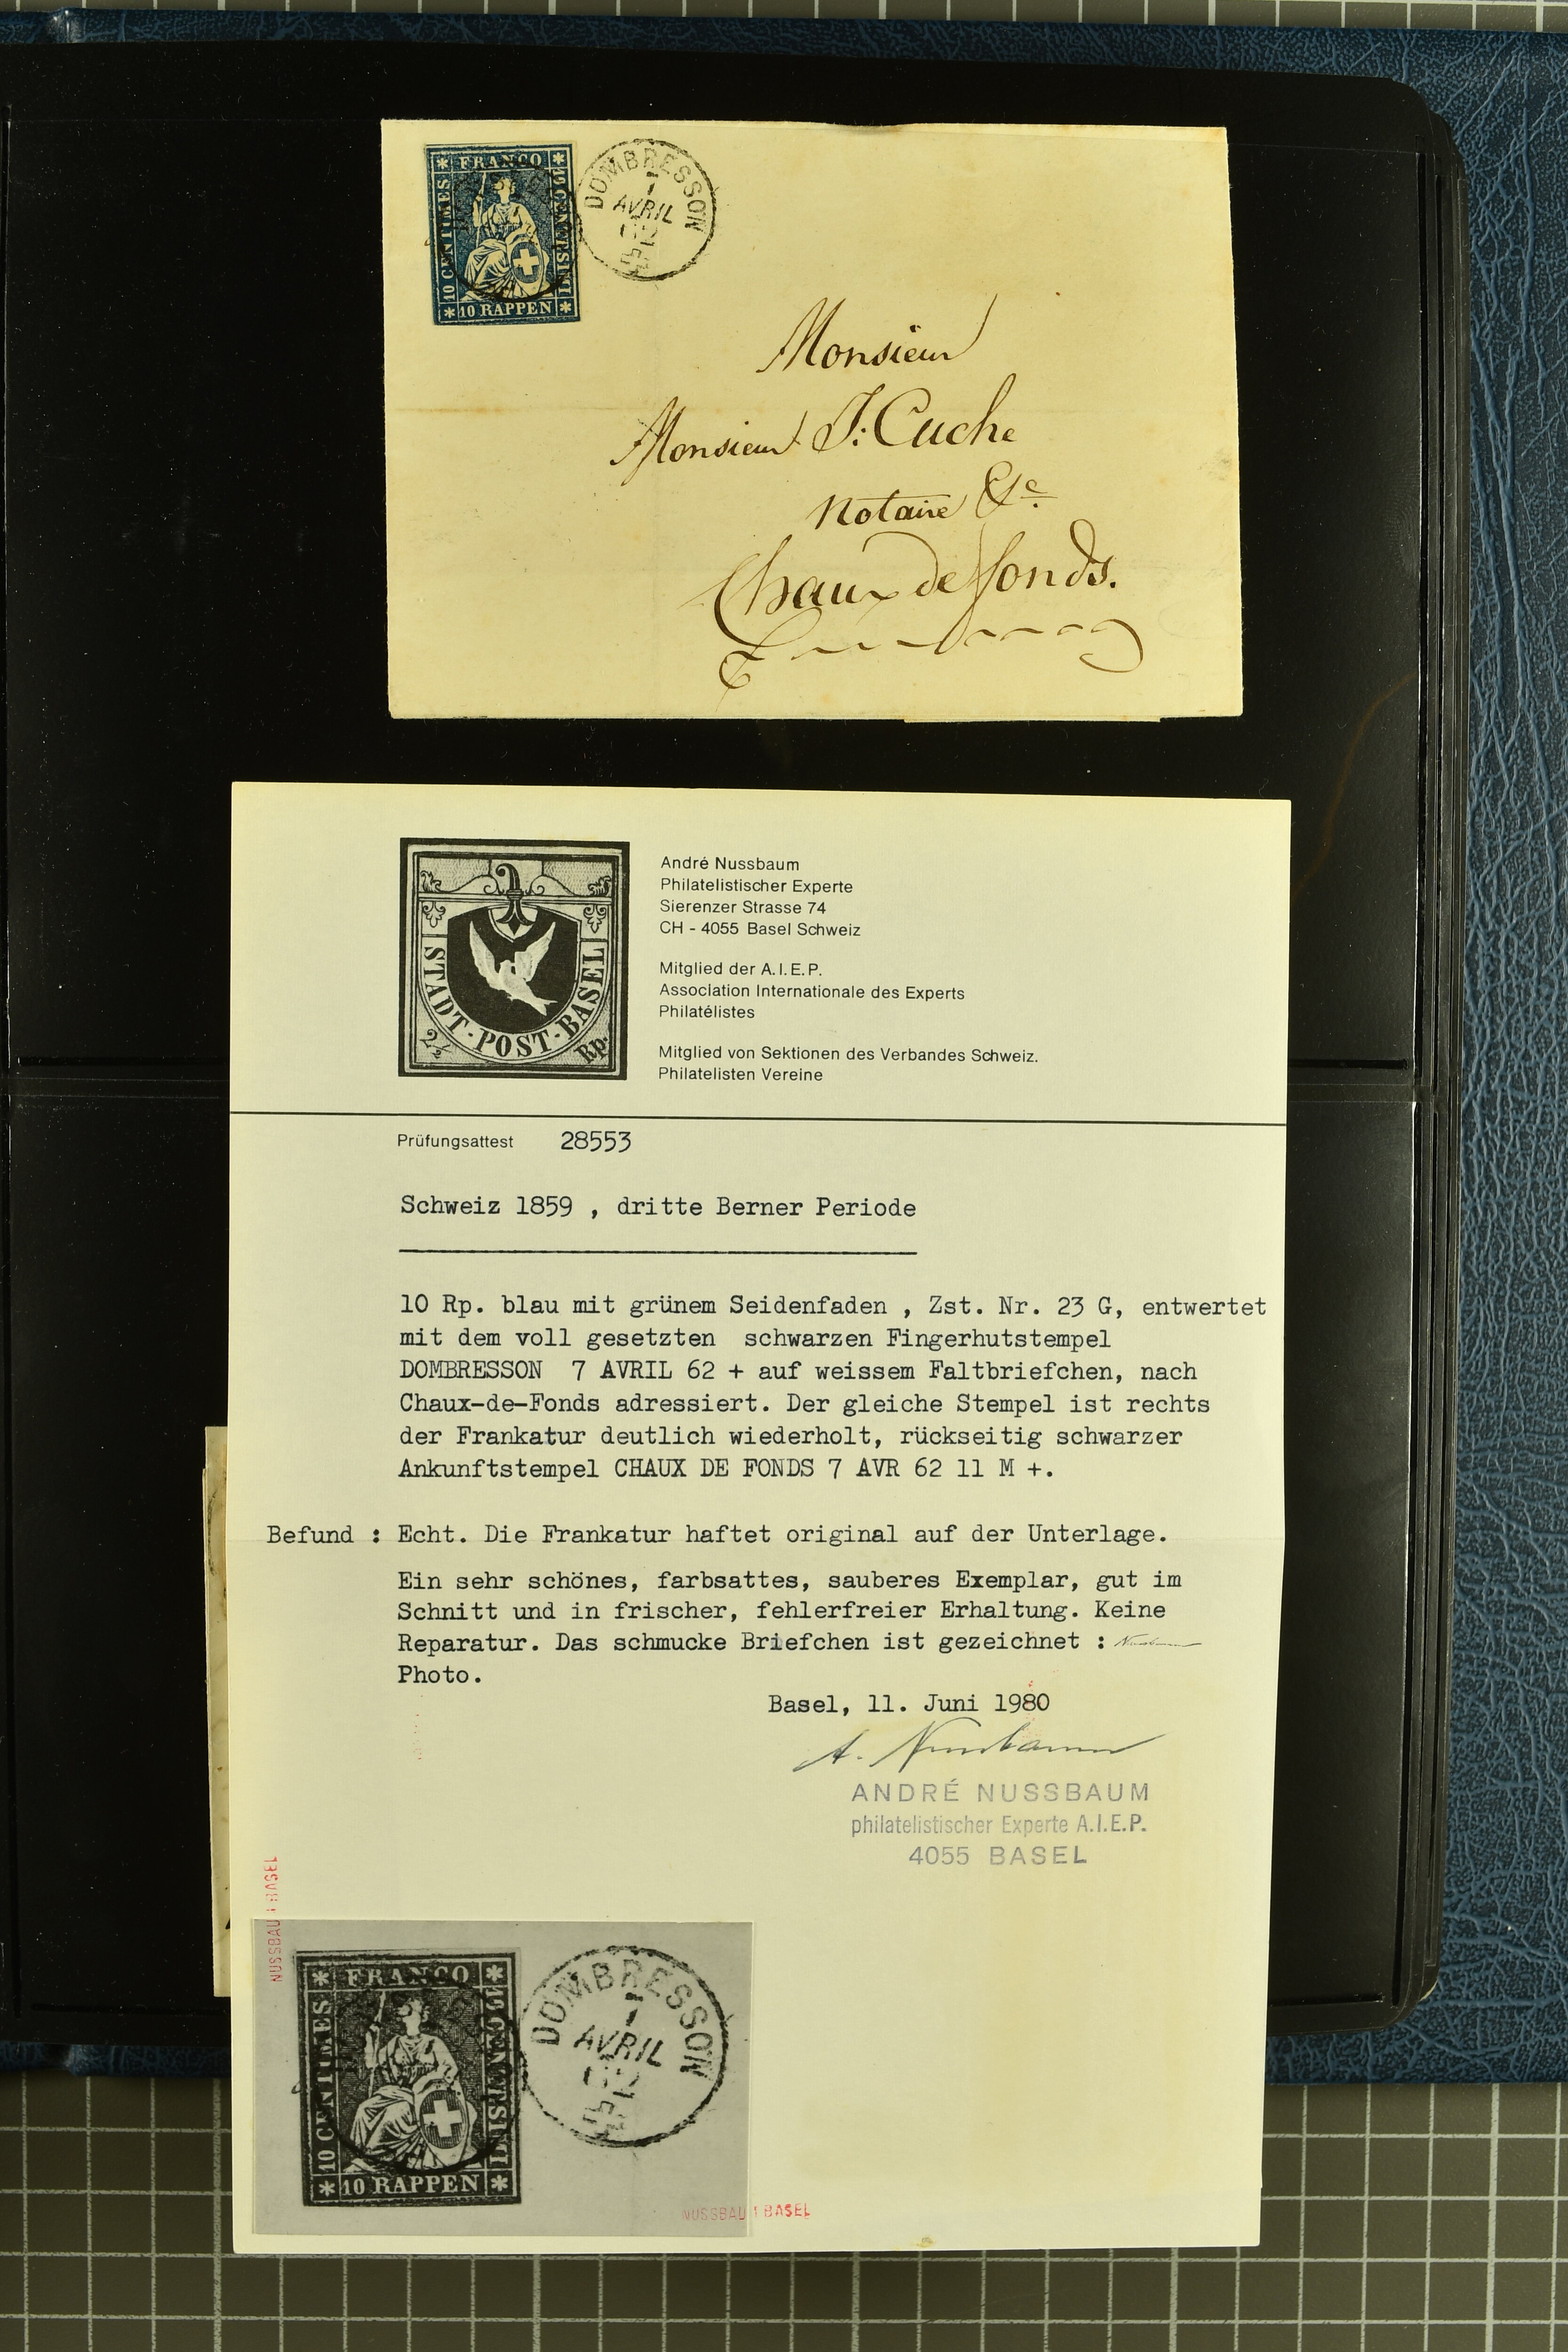 FRANCO
10 CENTIMES
10 CENTESIMI
10 RAPPEN
DOMBRESSON
7
AVRIL
62
Monsieur
Monsieur J: Cuche
Notaire &c.
Chaux de fonds.
STADT-POST-BASEL
2½ Rp.
André Nussbaum
Philatelistischer Experte
Sierenzer Strasse 74
CH - 4055 Basel Schweiz
Mitglied der A.I.E.P.
Association Internationale des Experts
Philatélistes
Mitglied von Sektionen des Verbandes Schweiz.
Philatelisten Vereine
Prüfungsattest 28553
Schweiz 1859 , dritte Berner Periode
10 Rp. blau mit grünem Seidenfaden , Zst. Nr. 23 G, entwertet
mit dem voll gesetzten schwarzen Fingerhutstempel
DOMBRESSON 7 AVRIL 62 + auf weissem Faltbriefchen, nach
Chaux-de-Fonds adressiert. Der gleiche Stempel ist rechts
der Frankatur deutlich wiederholt, rückseitig schwarzer
Ankunftstempel CHAUX DE FONDS 7 AVR 62 11 M +.
Befund : Echt. Die Frankatur haftet original auf der Unterlage.
Ein sehr schönes, farbsattes, sauberes Exemplar, gut im
Schnitt und in frischer, fehlerfreier Erhaltung. Keine
Reparatur. Das schmucke Briefchen ist gezeichnet : Nussbaum
Photo.
Basel, 11. Juni 1980
A. Nussbaum
ANDRÉ NUSSBAUM
philatelistischer Experte A.I.E.P.
4055 BASEL
NUSSBAUM BASEL
FRANCO
10 CENTIMES
10 CENTESIMI
10 RAPPEN
DOMBRESSON
7
AVRIL
62
NUSSBAUM BASEL